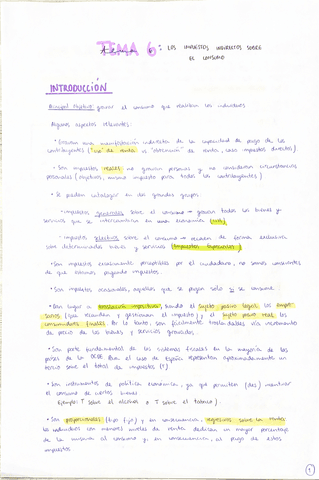 TEMA 6: LOS IMPUESTOS INDIRECTOS SOBRE
EL CONSUMO
INTRODUCCIÓN
Principal objetivo: gravar el consumo que realizan los individuos
Algunos aspectos relevantes:
• Gravan una manifestación indirecta de la capacidad de pago de los
contribuyentes ("uso" de renta vs "obtención" de renta, caso impuestos directos)
• Son impuestos reales: no gravan personas y no consideran circunstancias
personales (objetivos, mismo impuesto para todos los contribuyentes)
• Se pueden catalogar en dos grandes grupos:
- impuestos generales sobre el consumo → gravan todos los bienes y
servicios que se intercambian en una economía (IVA)
- impuestos selectivos sobre el consumo → recaen de forma exclusiva
sobre determinados bienes y servicios (Impuestos Especiales)
• Son impuestos escasamente perceptibles por el ciudadano, no somos conscientes
de que estamos pagando impuestos.
• Son impuestos ocasionales, aquellos que se pagan solo si se consume.
• Dan lugar a traslación impositiva, siendo el sujeto pasivo legal los empre
sarios (que recaudan y gestionan el impuesto) y el sujeto pasivo real los
consumidores finales. Por lo tanto, son fácilmente trasladables vía incremento
de precio de los bienes y servicios gravados.
• Son parte fundamental de los sistemas fiscales en la mayoría de los
países de la OCDE. Para el caso de España representan aproximadamente un
tercio sobre el total de impuestos
• Son instrumentos de política económica, ya que permiten (des)incentivar
el consumo de ciertos bienes
Ejemplo: T sobre el alcohol o T sobre el tabaco.
• Son proporcionales (tipo fijo) y, en consecuencia, regresivos sobre la renta:
los individuos con menores niveles de renta dedican un mayor porcentaje
de la misma al consumo y, en consecuencia, al pago de estos
impuestos.
1